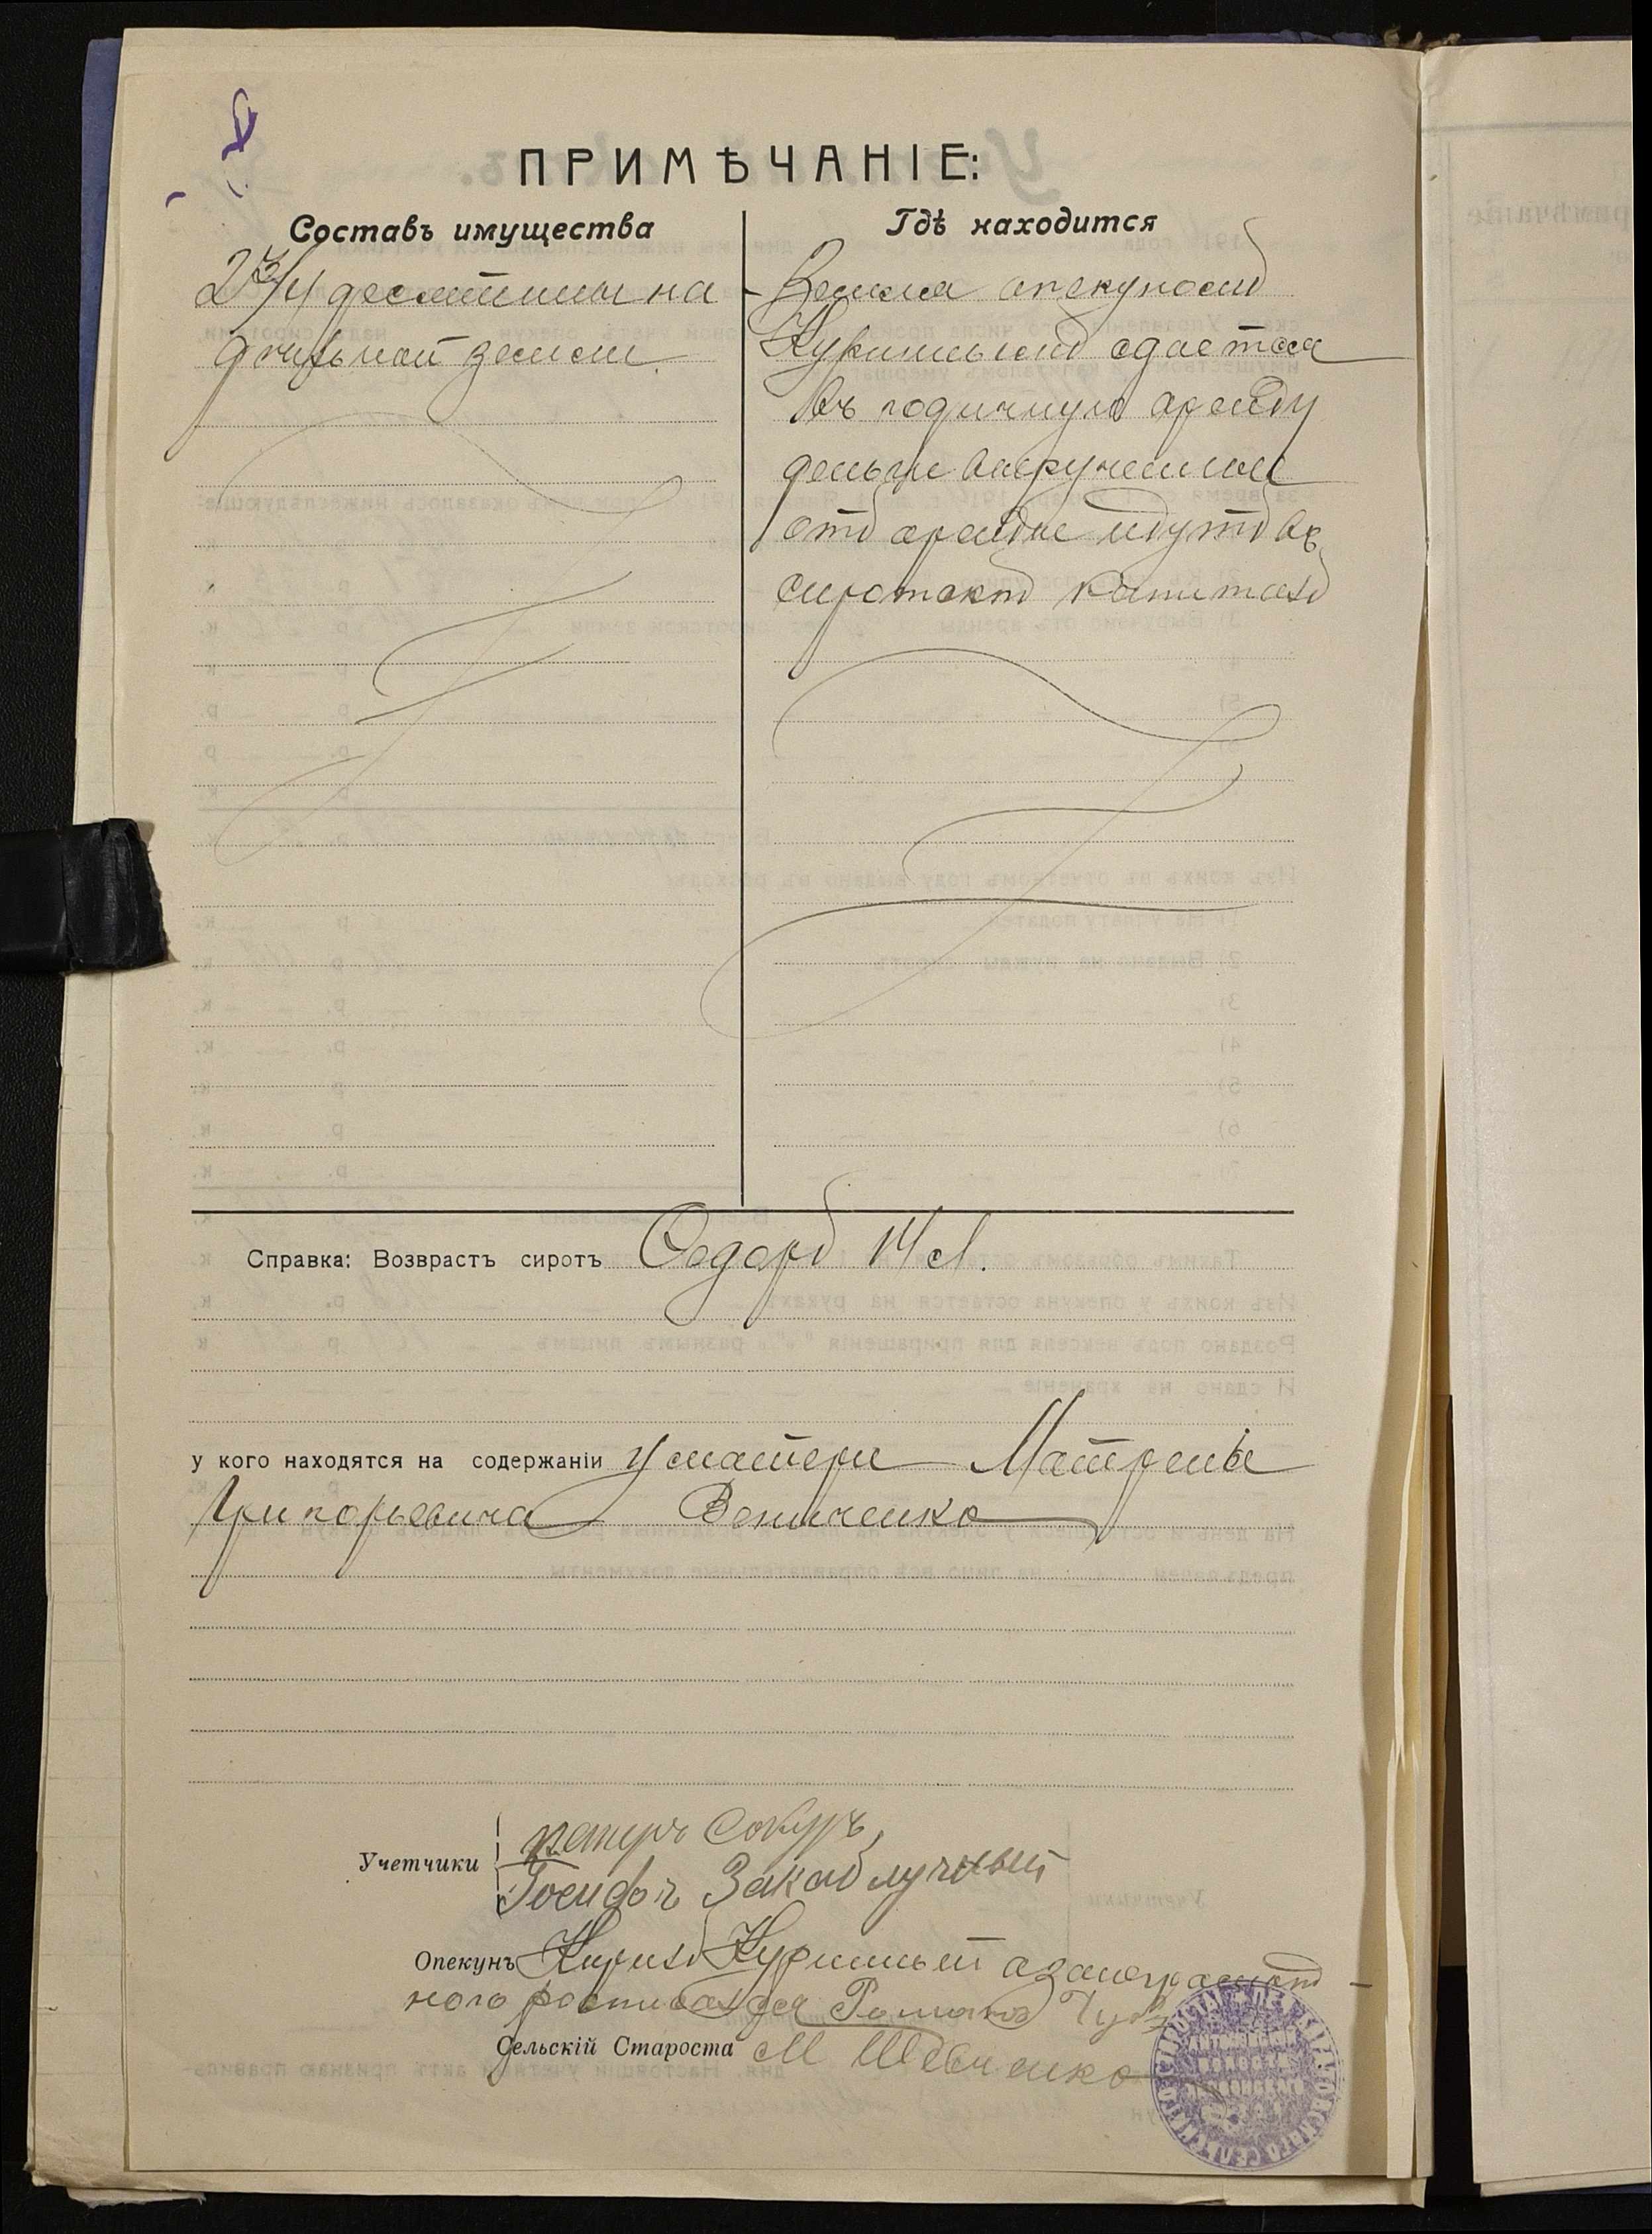 ПРИМѢЧАНІЕ:
Составъ имущества
2 3/4 десятины на
дѣльной земли.
Гдѣ находится
Земля опекуномъ
Куриннымъ сдается
въ годичную аренду
деньги вырученныя
отъ аренды идутъ въ
сиротскій капиталъ
Справка: Возврастъ сиротъ Федоръ 14 л.
у кого находятся на содержаніи у матери Матрены
Григорьевича
Учетчики
петръ Сокуръ
Іосифъ Закаблучный
Опекунъ Кирилъ Куринный а занеграмот
ного росписался Романъ
Сельскій Староста М Шевченко